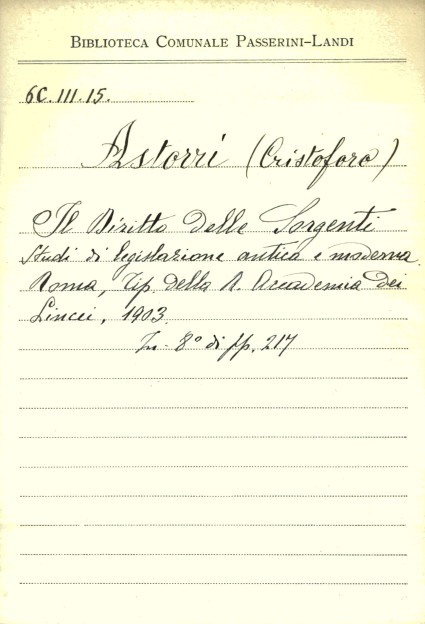 BIBLIOTECA COMUNALE PASSERINI-LANDI
6C.III.15.
Astorri (Cristoforo)
Il Diritto delle Sorgenti
Studi di legislazione antica e moderna.
Roma, Tip. della R. Accademia dei
Lincei, 1903.
In-8° di pp. 217